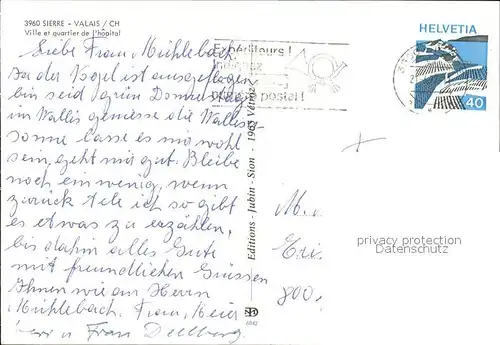 3960 SIERRE - VALAIS / CH
Ville et quartier de l'hôpital
HELVETIA
40
Expéditeurs !
postal !
Liebe Frau Mühlebach
Ja der Vogel ist ausgeflogen
bin seid Donnerstag
im Wallis geniesse die Wallis
sonne lasse es mir wohl
sein, geht mir gut. Bleibe
noch ein wenig, wenn
zurück tele ich so gibt
es etwas zu erzählen,
bis dahin alles Gute
mit freundlichen Grüssen
Ihnen wie am Herrn
Mühlebach. Frau Meier
Frau
Editions - Jubin - Sion - 1963 Vétroz
6042
M.
800
privacy protection
Datenschutz